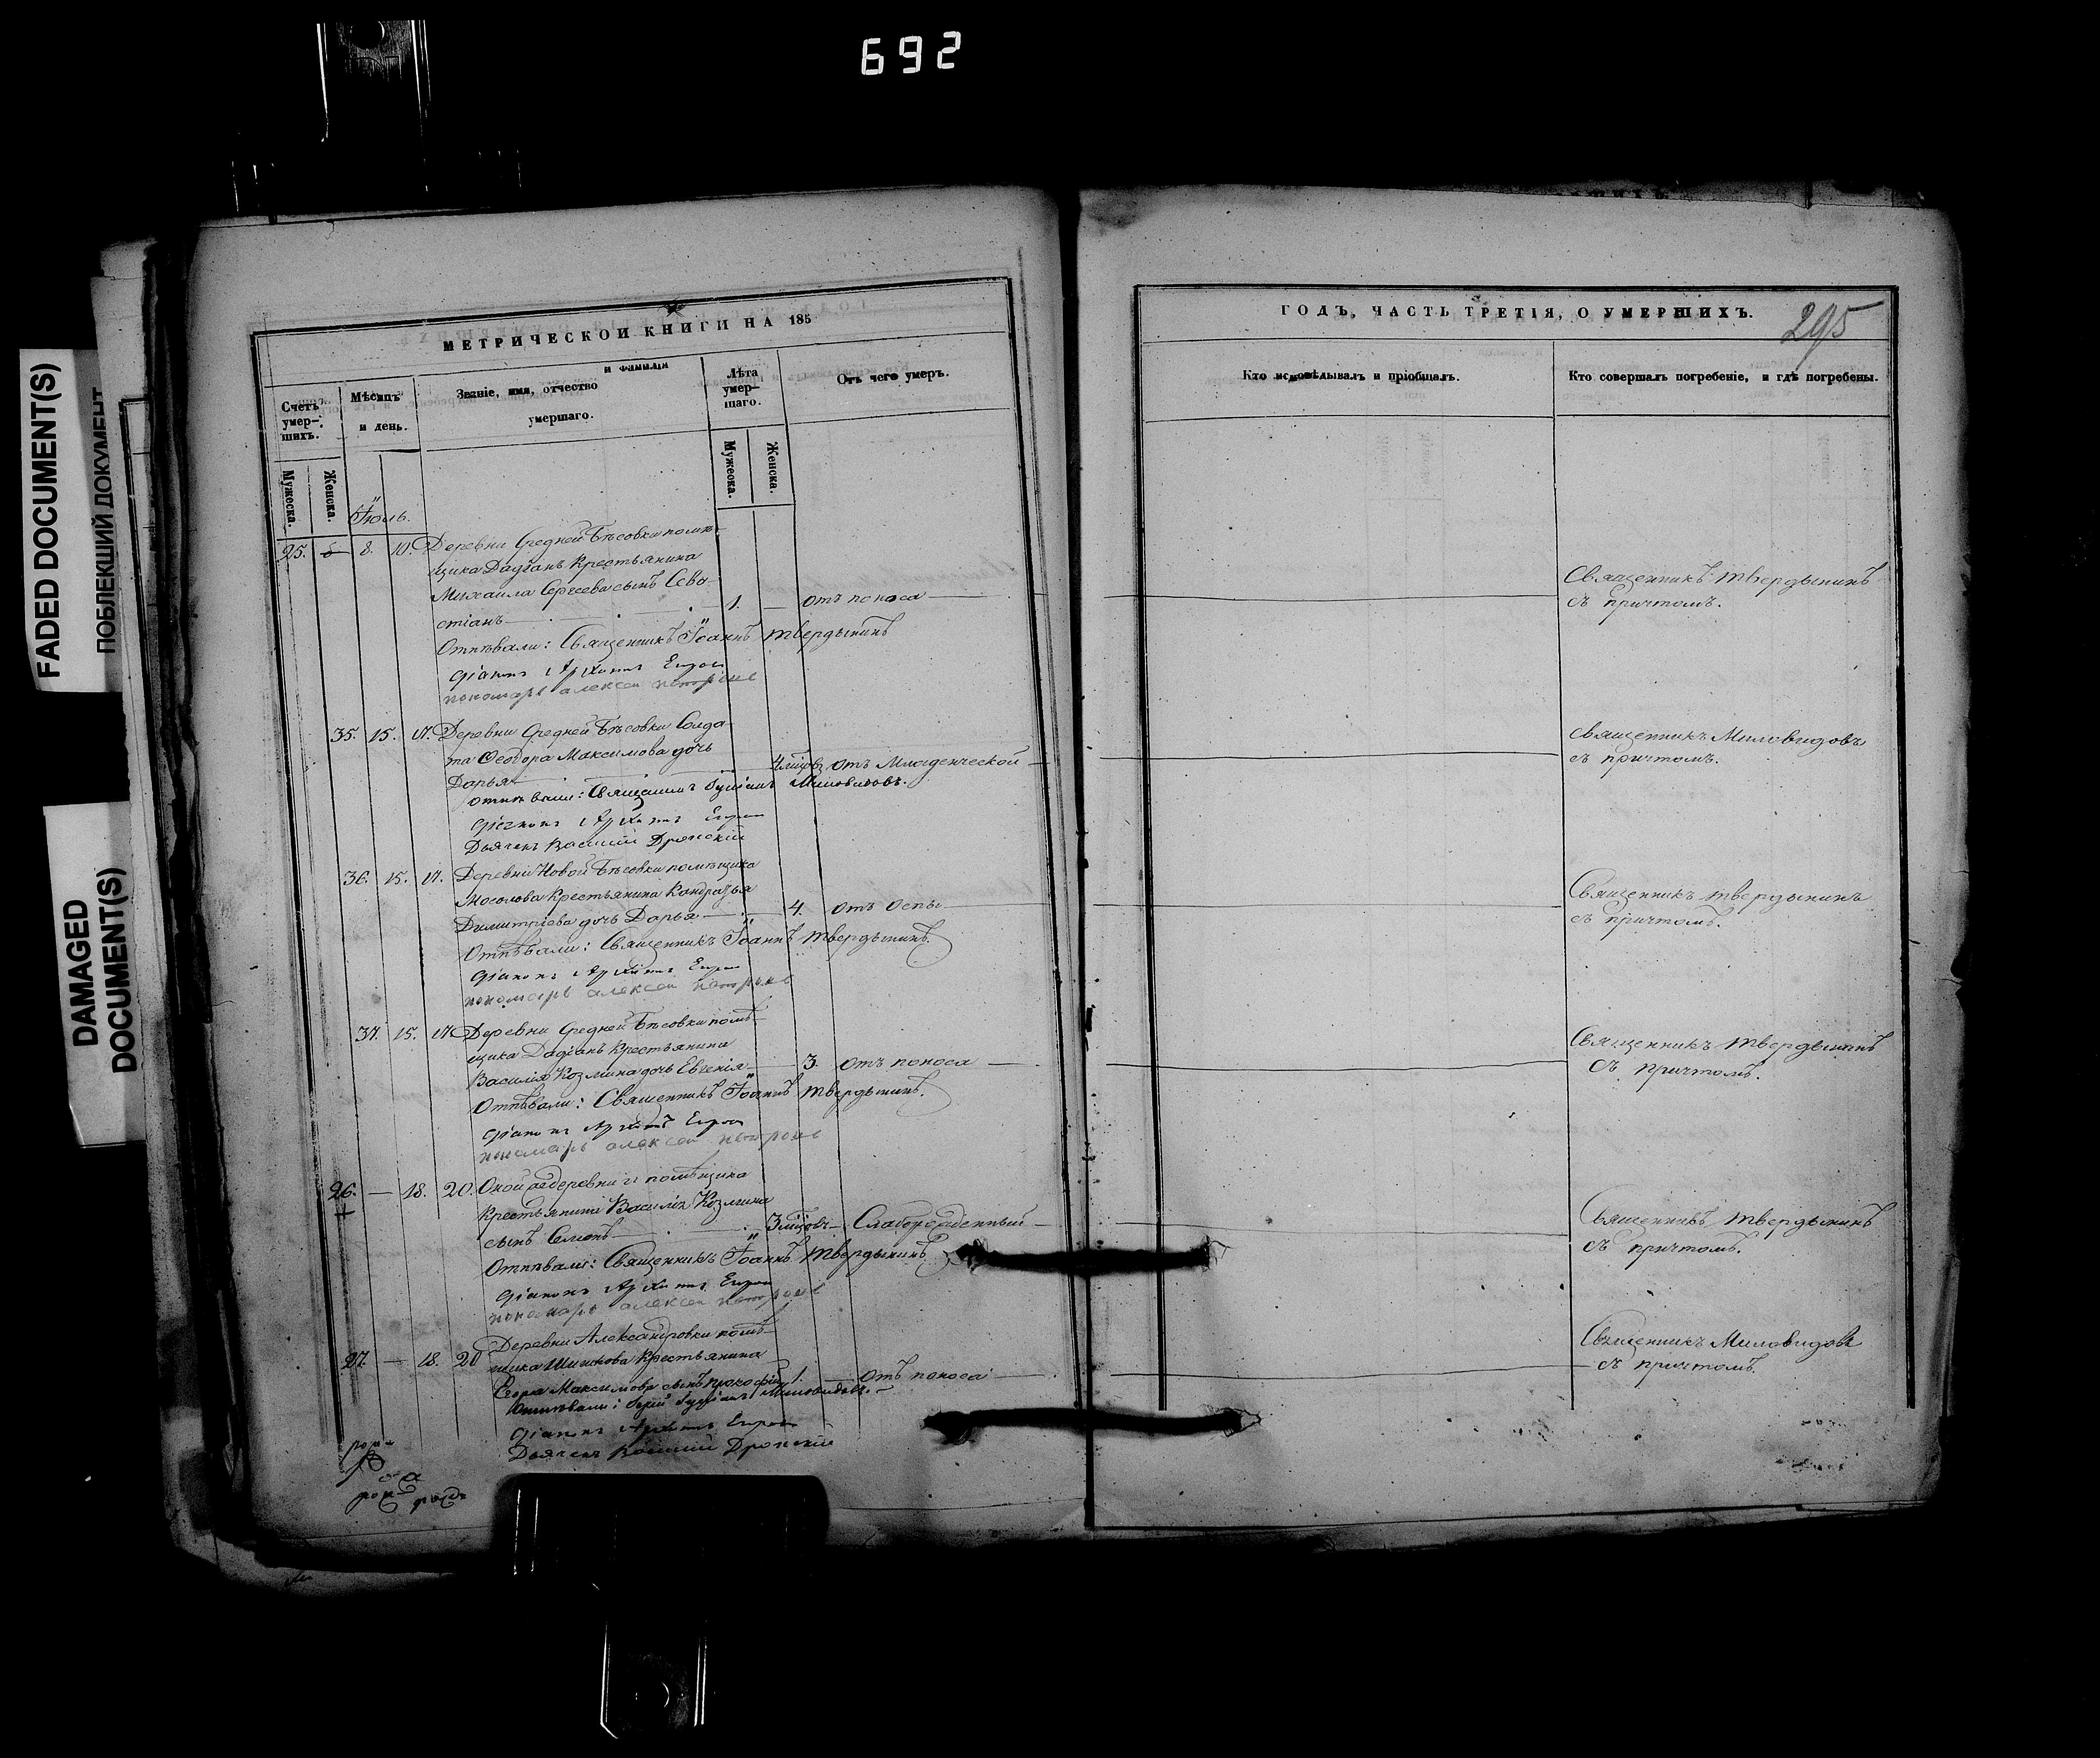 692
FADED DOCUMENT(S)
ПОБЛЕКШИЙ ДОКУМЕНТ
DAMAGED
DOCUMENT(S)
МЕТРИЧЕСКОЙ КНИГИ НА 185
Счетъ умер-шихъ.
Мѣсяцъ и день.
Званіе, имя, отчество и фамилія умершаго.
Лѣта умер-шаго.
Отъ чего умеръ.
Мужеска.
Женска.
Мужеска.
Женска.
Іюль.
25. 8. 10. Деревни Средней Бѣсовки помѣ-
щика Дадіанъ Крестьянина
Михаила Сергеева сынъ Сева-
стіанъ 1. — отъ поноса
Отпѣвали: Священникъ Іоаннъ Твердынинъ
Діаконъ Архипъ
пономарь алексей
35. 15. 17. Деревни Средней Бѣсовки Солда-
та Феодора Максимова дочь
Дарья 4 мѣсцъ отъ Младенческой
Отпѣвали: Священникъ Миловидовъ.
Діаконъ Архипъ
Дьячекъ Василій Дронскій
36. 15. 17. Деревни Новой Бѣсовки помѣщика
Мосолова Крестьянина Кондратья
Димитріева дочь Дарья 4. отъ Оспы
Отпѣвали: Священникъ Іоаннъ Твердынинъ.
Діаконъ Архипъ
пономарь алексей
37. 15. 17. Деревни Средней Бѣсовки помѣ-
щика Дадіанъ Крестьянина
Василія Козмина дочь Евгенія 3. отъ поноса
Отпѣвали: Священникъ Іоаннъ Твердынинъ.
Діаконъ Архипъ
пономарь алексей
26. — 18. 20. Оной же деревни и помѣщика
Крестьянина Василія Козмина
сынъ Семенъ 3 мѣсцовъ — Слаборожденный
Отпѣвали: Священникъ Іоаннъ Твердынинъ
Діаконъ Архипъ
пономарь алексей
27. — 18. 20 Деревни Александровки помѣ-
щика Шишкова Крестьянина
Егора Максимова сынъ Прокофій 1. — отъ поноса
Отпѣвали: Миловидовъ.
Діаконъ Архипъ
Дьячекъ Василій Дронскій
ГОДЪ, ЧАСТЬ ТРЕТІЯ, О УМЕРШИХЪ.
295
Кто исповѣдывалъ и пріобщалъ.
Кто совершалъ погребеніе, и гдѣ погребены.
Священникъ Твердынинъ
съ причтомъ.
Священникъ Миловидовъ
съ причтомъ.
Священникъ Твердынинъ
съ причтомъ.
Священникъ Твердынинъ
съ причтомъ.
Священникъ Твердынинъ
съ причтомъ.
Священникъ Миловидовъ
съ причтомъ.